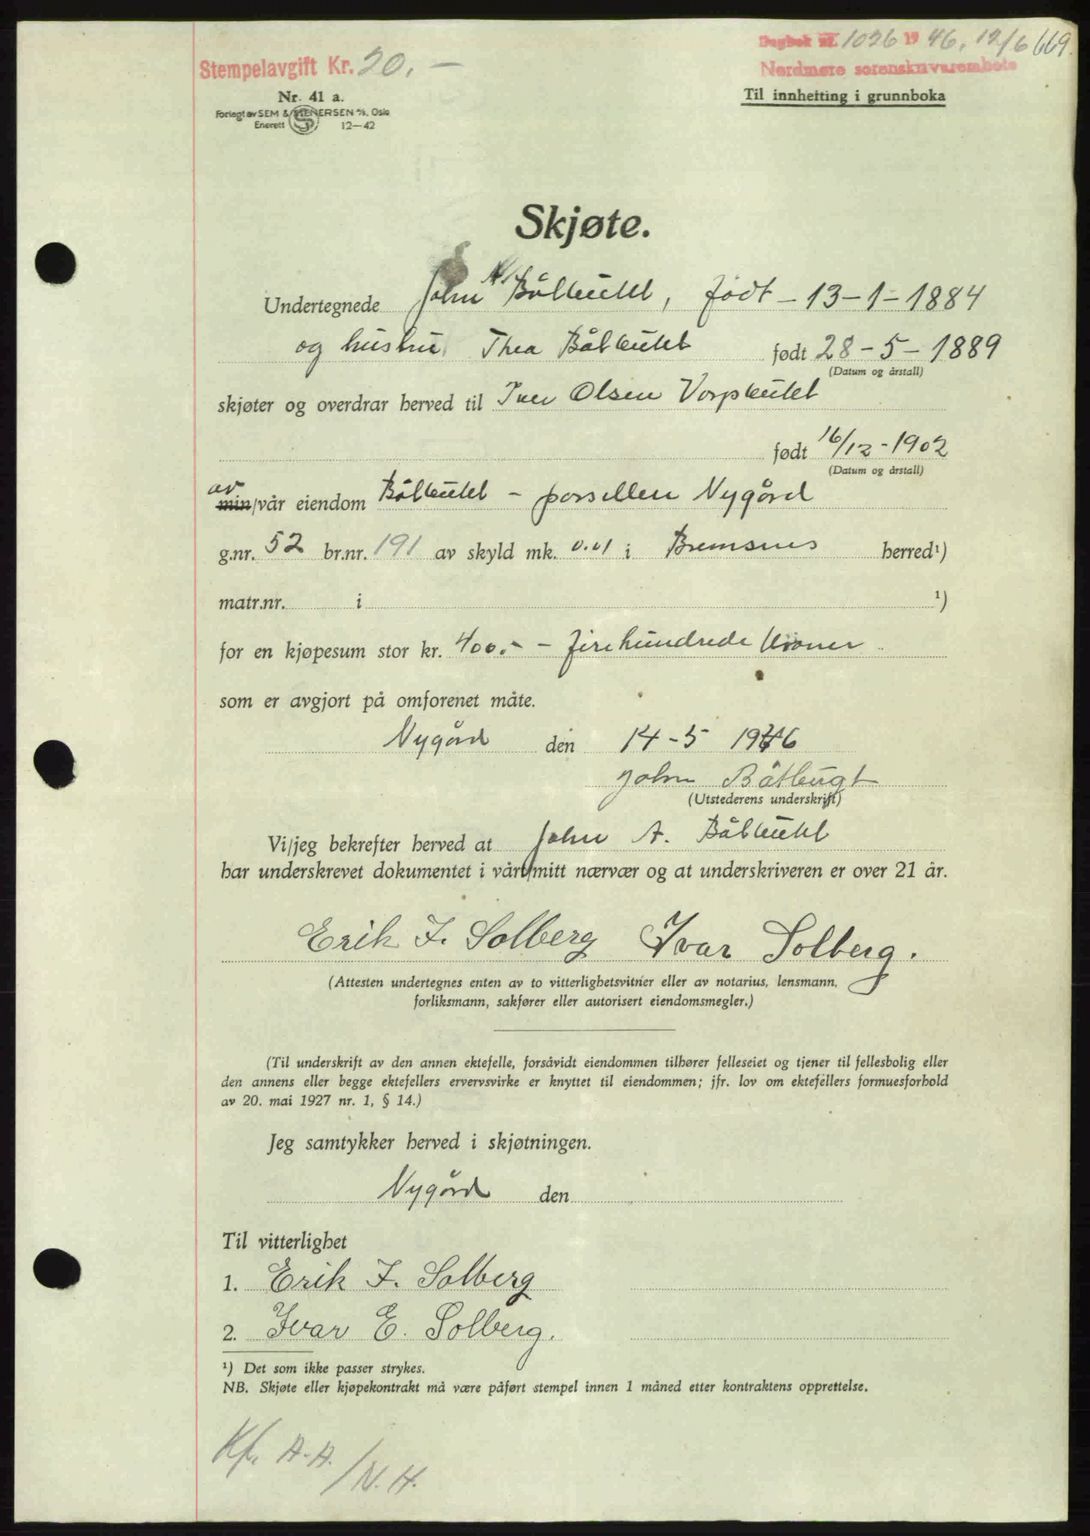 Dagbok nr. 1026 1946, 12/6 669.
Stempelavgift Kr. 20.-
Nordmøre sorenskriverembete
Nr. 41 a.
Til innhefting i grunnboka
Forlagt av SEM & STENERSEN A/S, Oslo
Enerett 12-42
Skjøte.
Undertegnede John A. Båtbukt, født - 13-1-1884
og hustru Thea Båtbukt født 28-5-1889
(Datum og årstall)
skjøter og overdrar herved til Iver Olsen Vorpbukt
født 16/12-1902
(Datum og årstall)
av
min/vår eiendom Båtbukt - parsellen Nygård
g.nr. 52 br.nr. 191 av skyld mk. 0.01 i Bremsnes herred¹)
matr.nr. i ¹)
for en kjøpesum stor kr. 400.- - firehundrede kroner
som er avgjort på omforenet måte.
Nygård den 14-5 1946
John Båtbugt
(Utstederens underskrift)
Vi/jeg bekrefter herved at John A. Båtbukt
har underskrevet dokumentet i vårt/mitt nærvær og at underskriveren er over 21 år.
Erik F. Solberg Ivar Solberg.
(Attesten undertegnes enten av to vitterlighetsvitner eller av notarius, lensmann,
forliksmann, sakfører eller autorisert eiendomsmegler.)
(Til underskrift av den annen ektefelle, forsåvidt eiendommen tilhører felleseiet og tjener til fellesbolig eller
den annens eller begge ektefellers ervervsvirke er knyttet til eiendommen; jfr. lov om ektefellers formuesforhold
av 20. mai 1927 nr. 1, § 14.)
Jeg samtykker herved i skjøtningen.
Nygård den
Til vitterlighet
1. Erik F. Solberg
2. Ivar E. Solberg.
¹) Det som ikke passer strykes.
NB. Skjøte eller kjøpekontrakt må være påført stempel innen 1 måned etter kontraktens opprettelse.
Kf. A-A. / N. H.